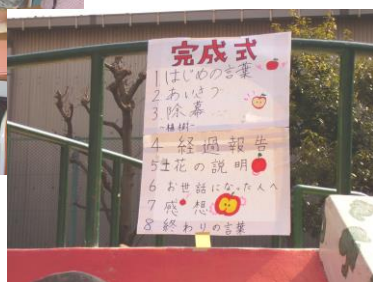 完成式
1 はじめの言葉
2 あいさつ
3 除幕
-植樹-
4 経過報告
5 生花の説明
6 お世話になった人へ
7 感想
8 終わりの言葉